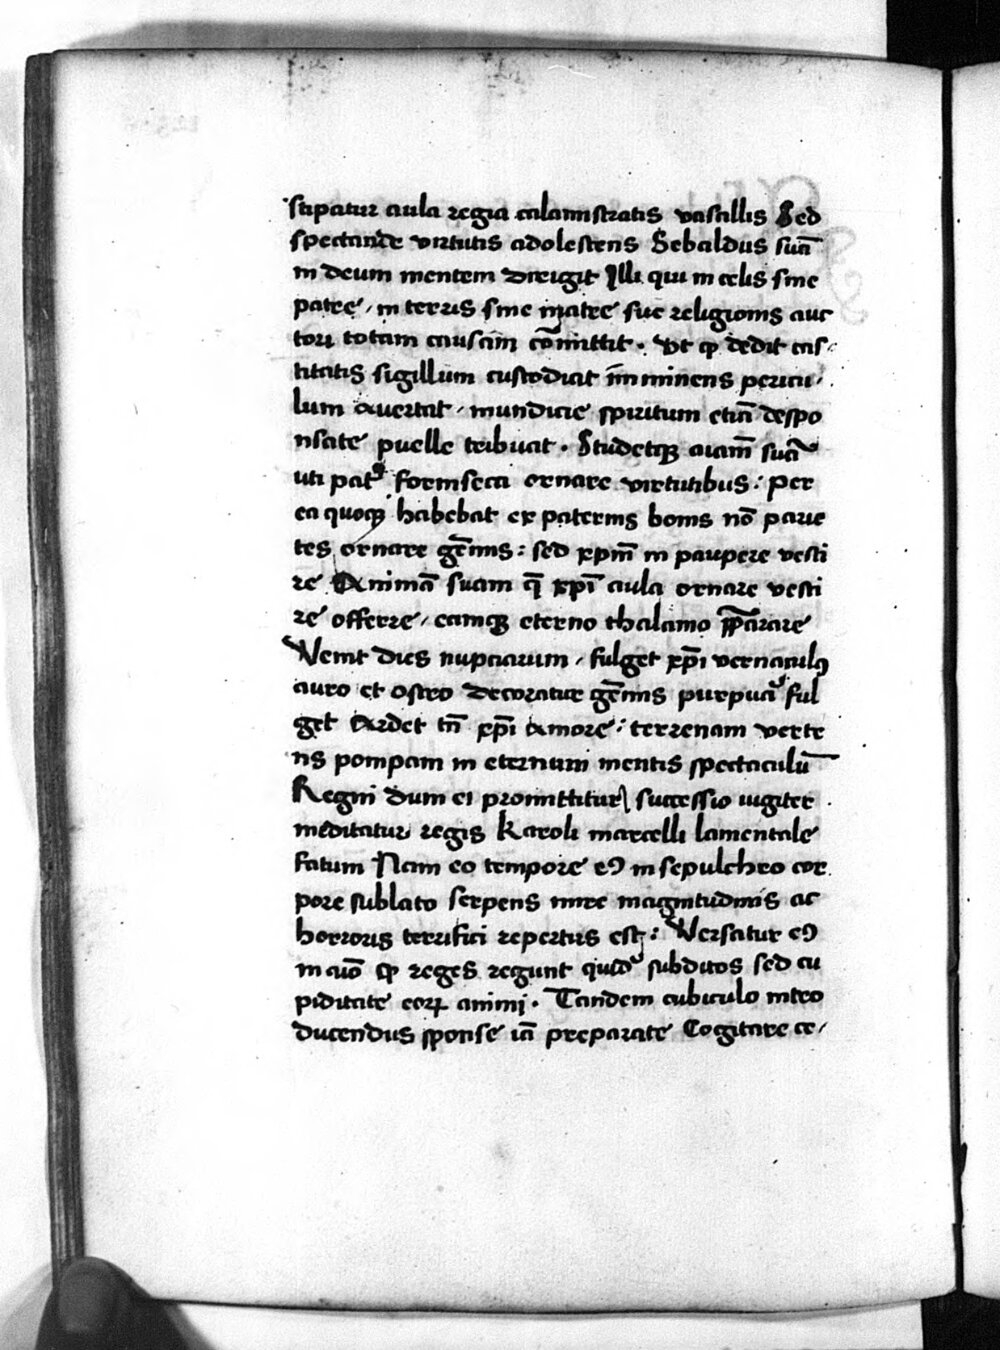 stipatur aula regia calamistratis vasallis Sed
spectande virtutis adolescens Sebaldus suā
in deum mentem direugit Illi qui in celis sine
patre, in terris sine matre sue religionis auc
tori totam causam cōmittit. Ut qꝫ dedit cas-
titatis sigillum custodiat īmminens pericu-
lum avertat, mundicie spiritum etiā despo
nsate puelle tribuat. Studetqꝫ aīam suā
uti patꝰ forinseca ornare virtutibus: Per
ea quoqꝫ habebat ex paternis bonis nō parie
tes ornare gēmis: sed xp̄m in paupere vesti
re Animā suam q̄ xp̄i aula ornare vesti
re offerre, eamqꝫ eterno thalamo p̄parare
Venit dies nupciarum, fulget xp̄i vernaculꝰ
auro et ostro decoratur gēmis purpuā ful
get Ardet tn̄ xp̄i amore: terrenam verte
ns pompam in eternum mentis spectaculū
Regni dum ei promittitur successio iugiter
meditatur regis Karoli marcelli lamentale
fatum Nam eo tempore eꝰ in sepulchro cor
pore sublato serpens mire magnitudinis ac
horroris terrifici repertus est: Versatur eꝰ
in aīo qꝫ reges regunt quidē subditos sed cu
piditate eoꝝ animi. Tandem cubiculo intro
ducendus sponse iā preparate Cogitare ce-